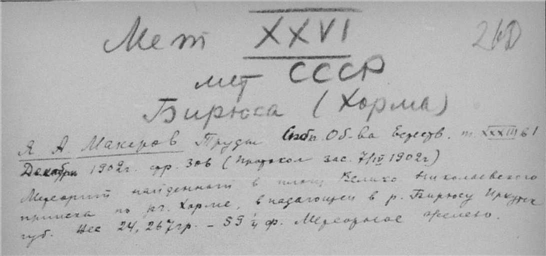 Мет XXVI
мет СССР
Бирюса (Хорма)
Я А Макеров Труды Спб. Об-ва Естеств. т XXXIII в 1
Декабрь 1902г. стр. 306 (протокол зас. 1902г)
Метеорит найденный в площ. Велико Николаевского
прииска по рч. Хорме, впадающей в р. Бирюсу Иркут
губ. Вес 24,267гр. – 59 ф. Метеорное железо.